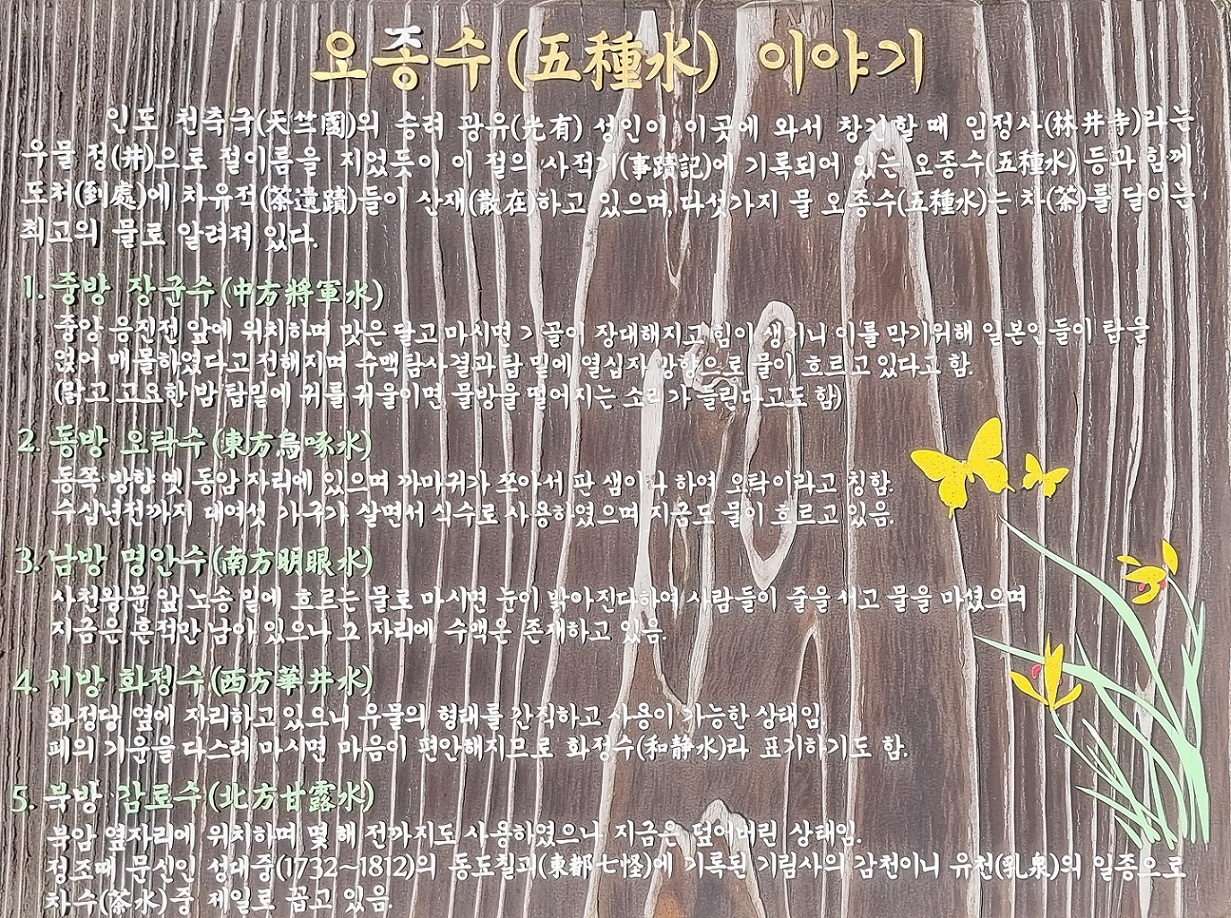 오종수(五種水) 이야기
인도 천축국(天竺國)의 승려 광유(光有) 성인이 이곳에 와서 창건할 때 임정사(林井寺)라는
우물 정(井)으로 절이름을 지었듯이 이 절의 사적기(事蹟記)에 기록되어 있는 오종수(五種水) 등과 함께
도처(到處)에 차유적(茶遺蹟)들이 산재(散在)하고 있으며, 다섯가지 물 오종수(五種水)는 차(茶)를 달이는
최고의 물로 알려져 있다.
1. 중방 장군수(中方將軍水)
중앙 응진전 앞에 위치하며 맛은 달고 마시면 기골이 장대해지고 힘이 생기니 이를 막기위해 일본인들이 탑을
얹어 매몰하였다고 전해지며 수맥탐사결과 탑 밑에 열십자 방향으로 물이 흐르고 있다고 함.
(맑고 고요한 밤 탑밑에 귀를 귀울이면 물방울 떨어지는 소리가 들린다고도 함)
2. 동방 오탁수(東方烏啄水)
동쪽 방향 옛 동암 자리에 있으며 까마귀가 쪼아서 판 샘이라 하여 오탁이라고 칭함.
수십년전까지 대여섯 가구가 살면서 식수로 사용하였으며 지금도 물이 흐르고 있음.
3. 남방 명안수(南方明眼水)
사천왕문 앞 노송 밑에 흐르는 물로 마시면 눈이 밝아진다하여 사람들이 줄을 서고 물을 마셨으며
지금은 흔적만 남아 있으나 그 자리에 수맥은 존재하고 있음.
4. 서방 화정수(西方華井水)
화정당 옆에 자리하고 있으니 우물의 형태를 간직하고 사용이 가능한 상태임.
폐의 기운을 다스려 마시면 마음이 편안해지므로 화정수(和靜水)라 표기하기도 함.
5. 북방 감로수(北方甘露水)
북암 옆자리에 위치하며 몇 해 전까지도 사용하였으나 지금은 덮어버린 상태임.
정조때 문신인 성대중(1732~1812)의 동도칠괴(東都七怪)에 기록된 기림사의 감천이니 유천(乳泉)의 일종으로
차수(茶水)중 제일로 꼽고 있음.